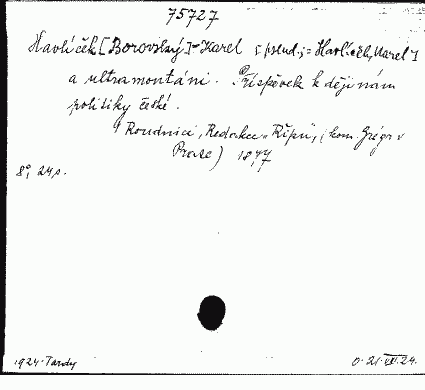 75727
Havlíček [Borovský] Karel [pseud. = Havlíček, Karel]
a ultramontáni. Příspěvek k dějinám
politiky české.
V Roudnici, Redakce "Řípu", (kom. Grégr v
Praze) 1877
8°, 24 s.
1924. Tardy
O. 21. VII. 24.